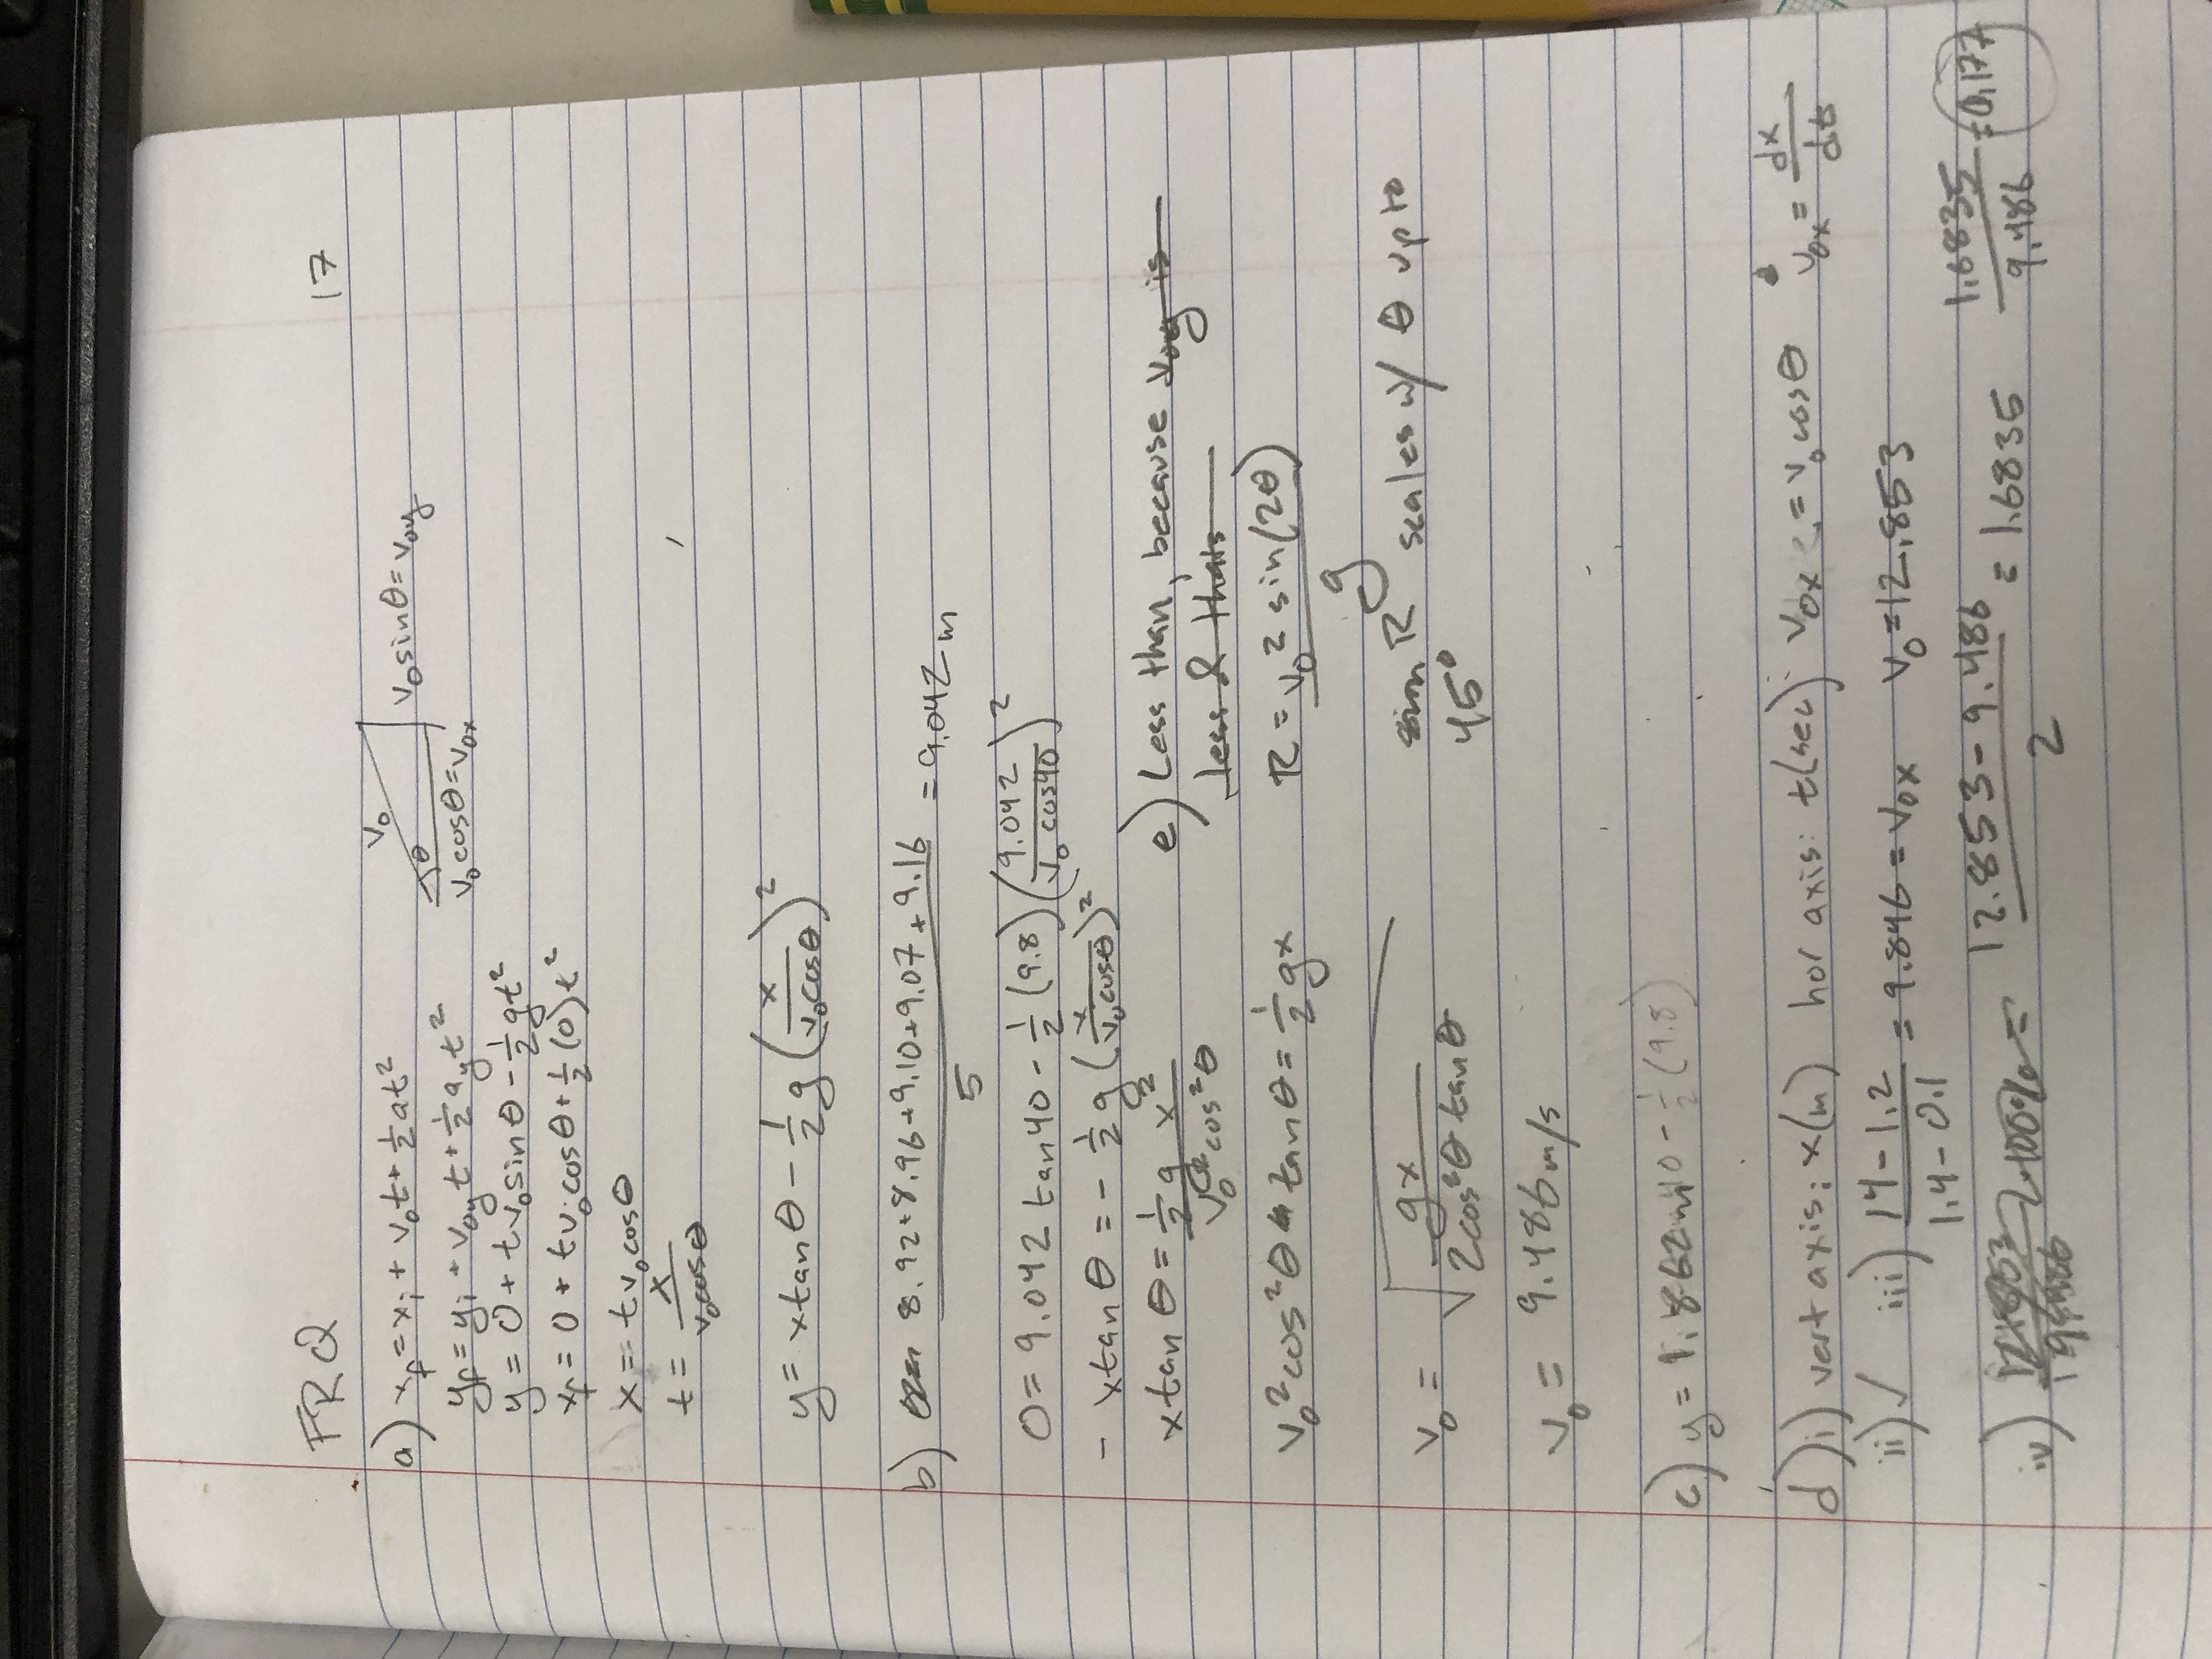 FRQ
17
a) x_f = x_i + v_0t + ½at²
v_0
θ
v_0 sinθ = v_0y
v_0 cosθ = v_0x
y_f = y_i + v_0y t + ½a_y t²
y = 0 + tv_0 sinθ - ½gt²
x_f = 0 + tv_0 cosθ + ½(0)t²
x = tv_0 cosθ
t = x / v_0 cosθ
y = x tanθ - ½g(x / v_0 cosθ)²
b) 8.92+8.96+9.10+9.07+9.16 / 5 = 9.042 m
0 = 9.042 tan40 - ½(9.8)(9.042 / v_0 cos40)²
- x tanθ = - ½g(x / v_0 cosθ)²
x tanθ = ½g x² / v_0² cos²θ
v_0² cos²θ tanθ = ½gx
v_0 = √(gx / 2cos²θ tanθ)
v_0 = 9.486 m/s
e) Less than, because v_0y is
less & thats
R = v_0² sin(2θ) / g
R scales w/ θ up to
45°
c) y = 1.862 - ½(9.8)
d) i) vert axis: x(m) hor axis: t(sec) v_0x = v_0 cosθ v_0x = dx / dt
ii) ✓ iii) 14-1.2 / 1.4-0.1 = 9.846 = v_0x v_0 = 12.853
iv) 12.853 - 9.486 / 2 = 1.6835 1.6835 / 9.486 = 0.177